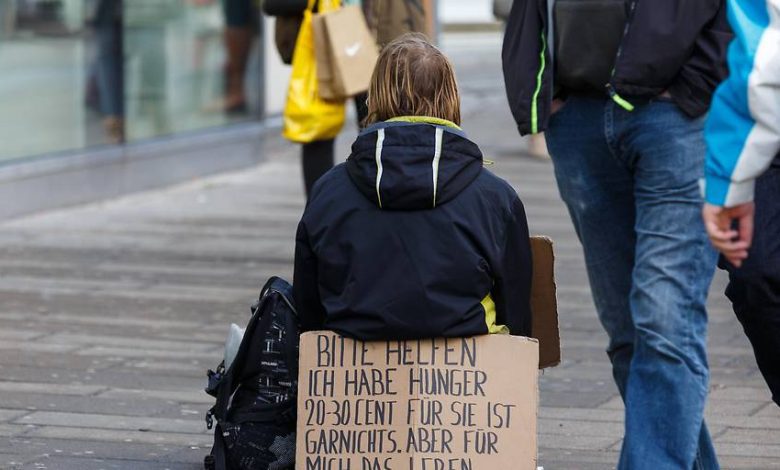 BITTE HELFEN
ICH HABE HUNGER
20-30 CENT FÜR SIE IST
GARNICHTS. ABER FÜR
MICH DAS LEBEN